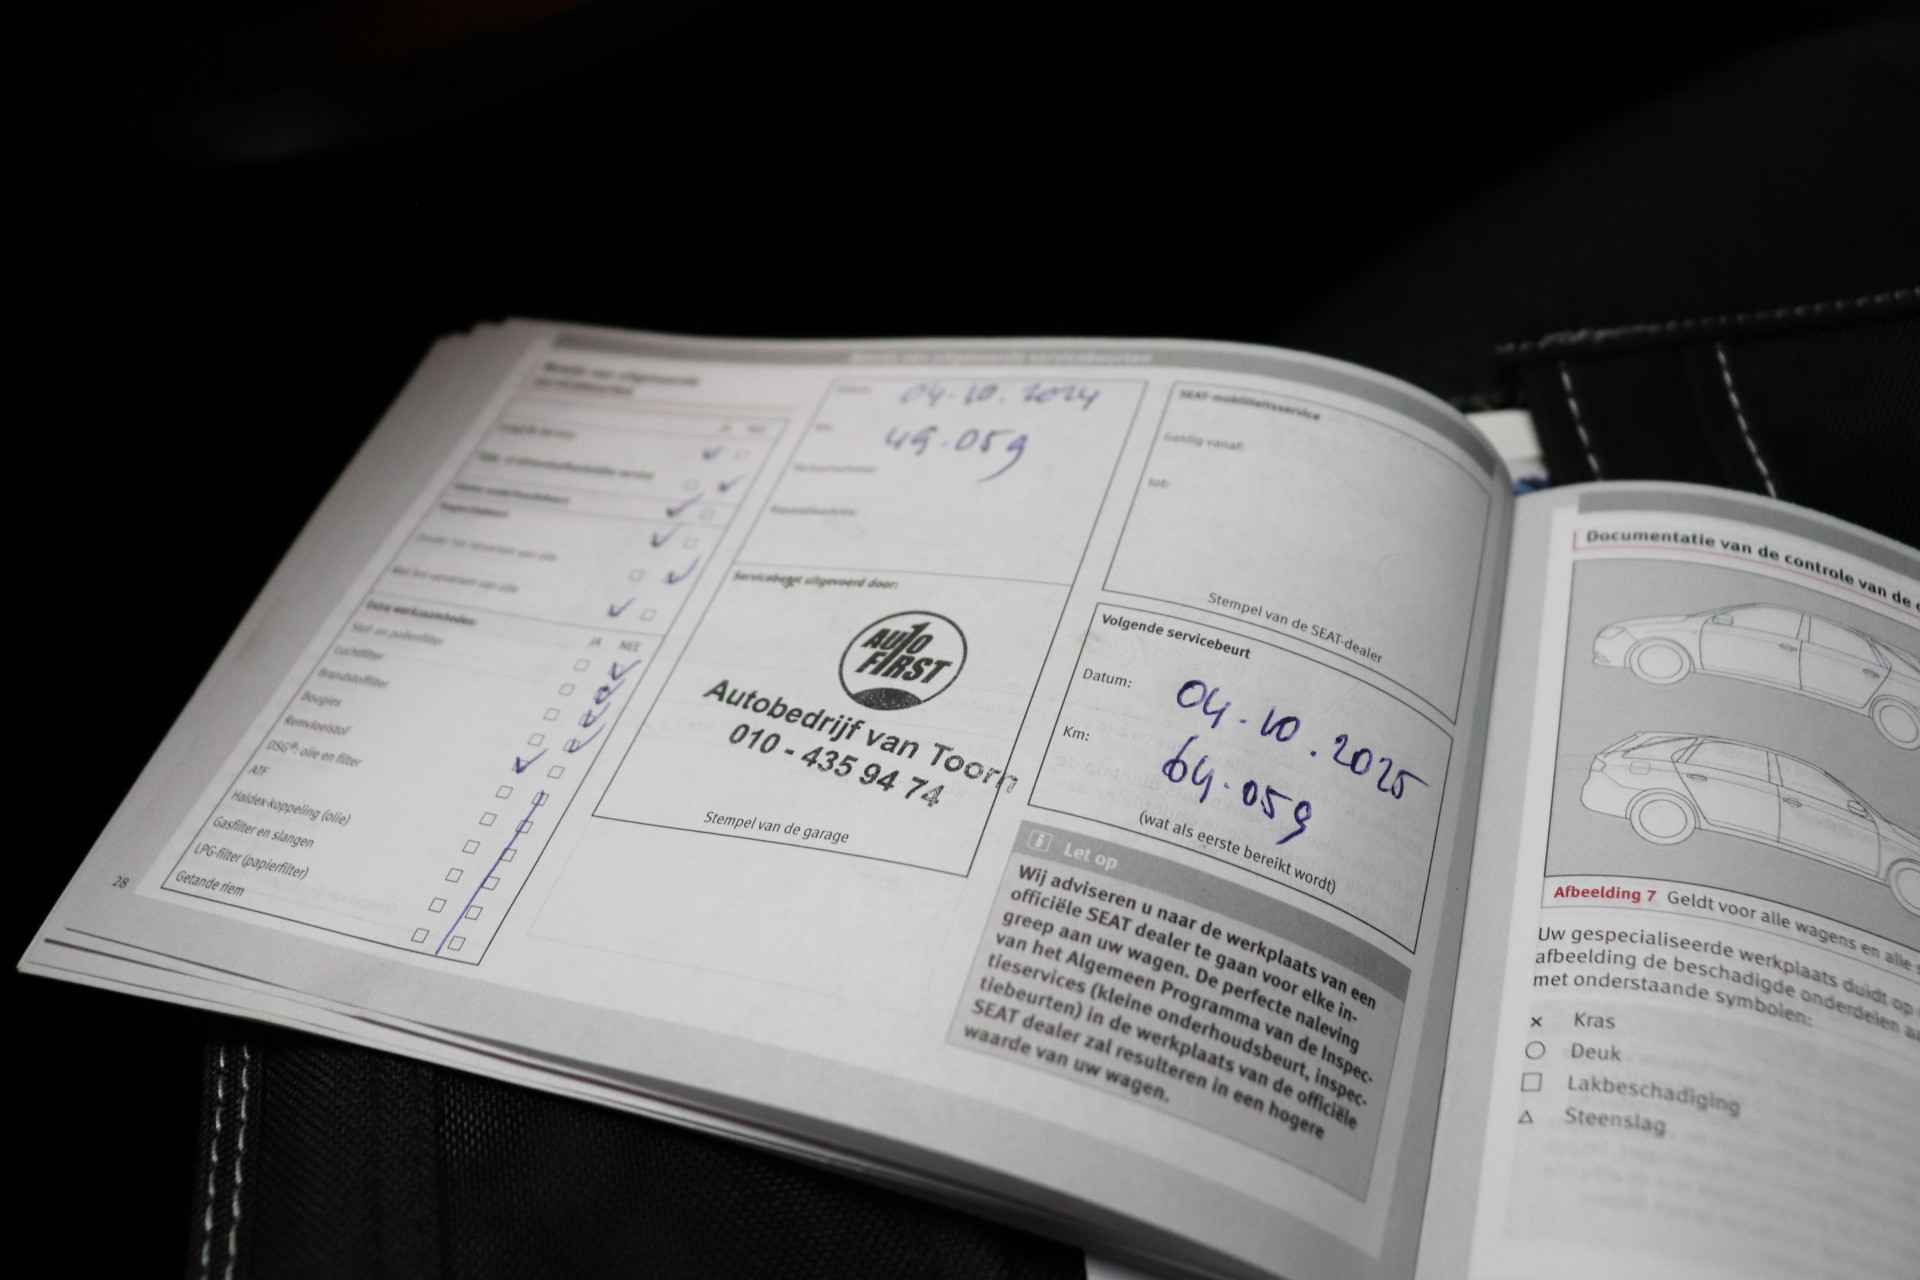 04.10.2024
49.059
Servicebeurt uitgevoerd door:
AUTO
FIRST
Autobedrijf van Toorn
010 - 435 94 74
Stempel van de garage
Extra werkzaamheden:
JA NEE
Stof- en pollenfilter
Luchtfilter
Brandstoffilter
Bougies
Remvloeistof
DSG®: olie en filter
ATF
Haldex-koppeling (olie)
Gasfilter en slangen
LPG-filter (papierfilter)
Getande riem
28
SEAT-mobiliteitsservice
Geldig vanaf:
tot:
Stempel van de SEAT-dealer
Volgende servicebeurt
Datum: 04.10.2025
Km: 64.059
(wat als eerste bereikt wordt)
i Let op
Wij adviseren u naar de werkplaats van een
officiële SEAT dealer te gaan voor elke in-
greep aan uw wagen. De perfecte naleving
van het Algemeen Programma van de Inspec-
tieservices (kleine onderhoudsbeurt, inspec-
tiebeurten) in de werkplaats van de officiële
SEAT dealer zal resulteren in een hogere
waarde van uw wagen.
Documentatie van de controle van de
Afbeelding 7 Geldt voor alle wagens en alle
Uw gespecialiseerde werkplaats duidt op
afbeelding de beschadigde onderdelen
met onderstaande symbolen:
× Kras
○ Deuk
□ Lakbeschadiging
△ Steenslag